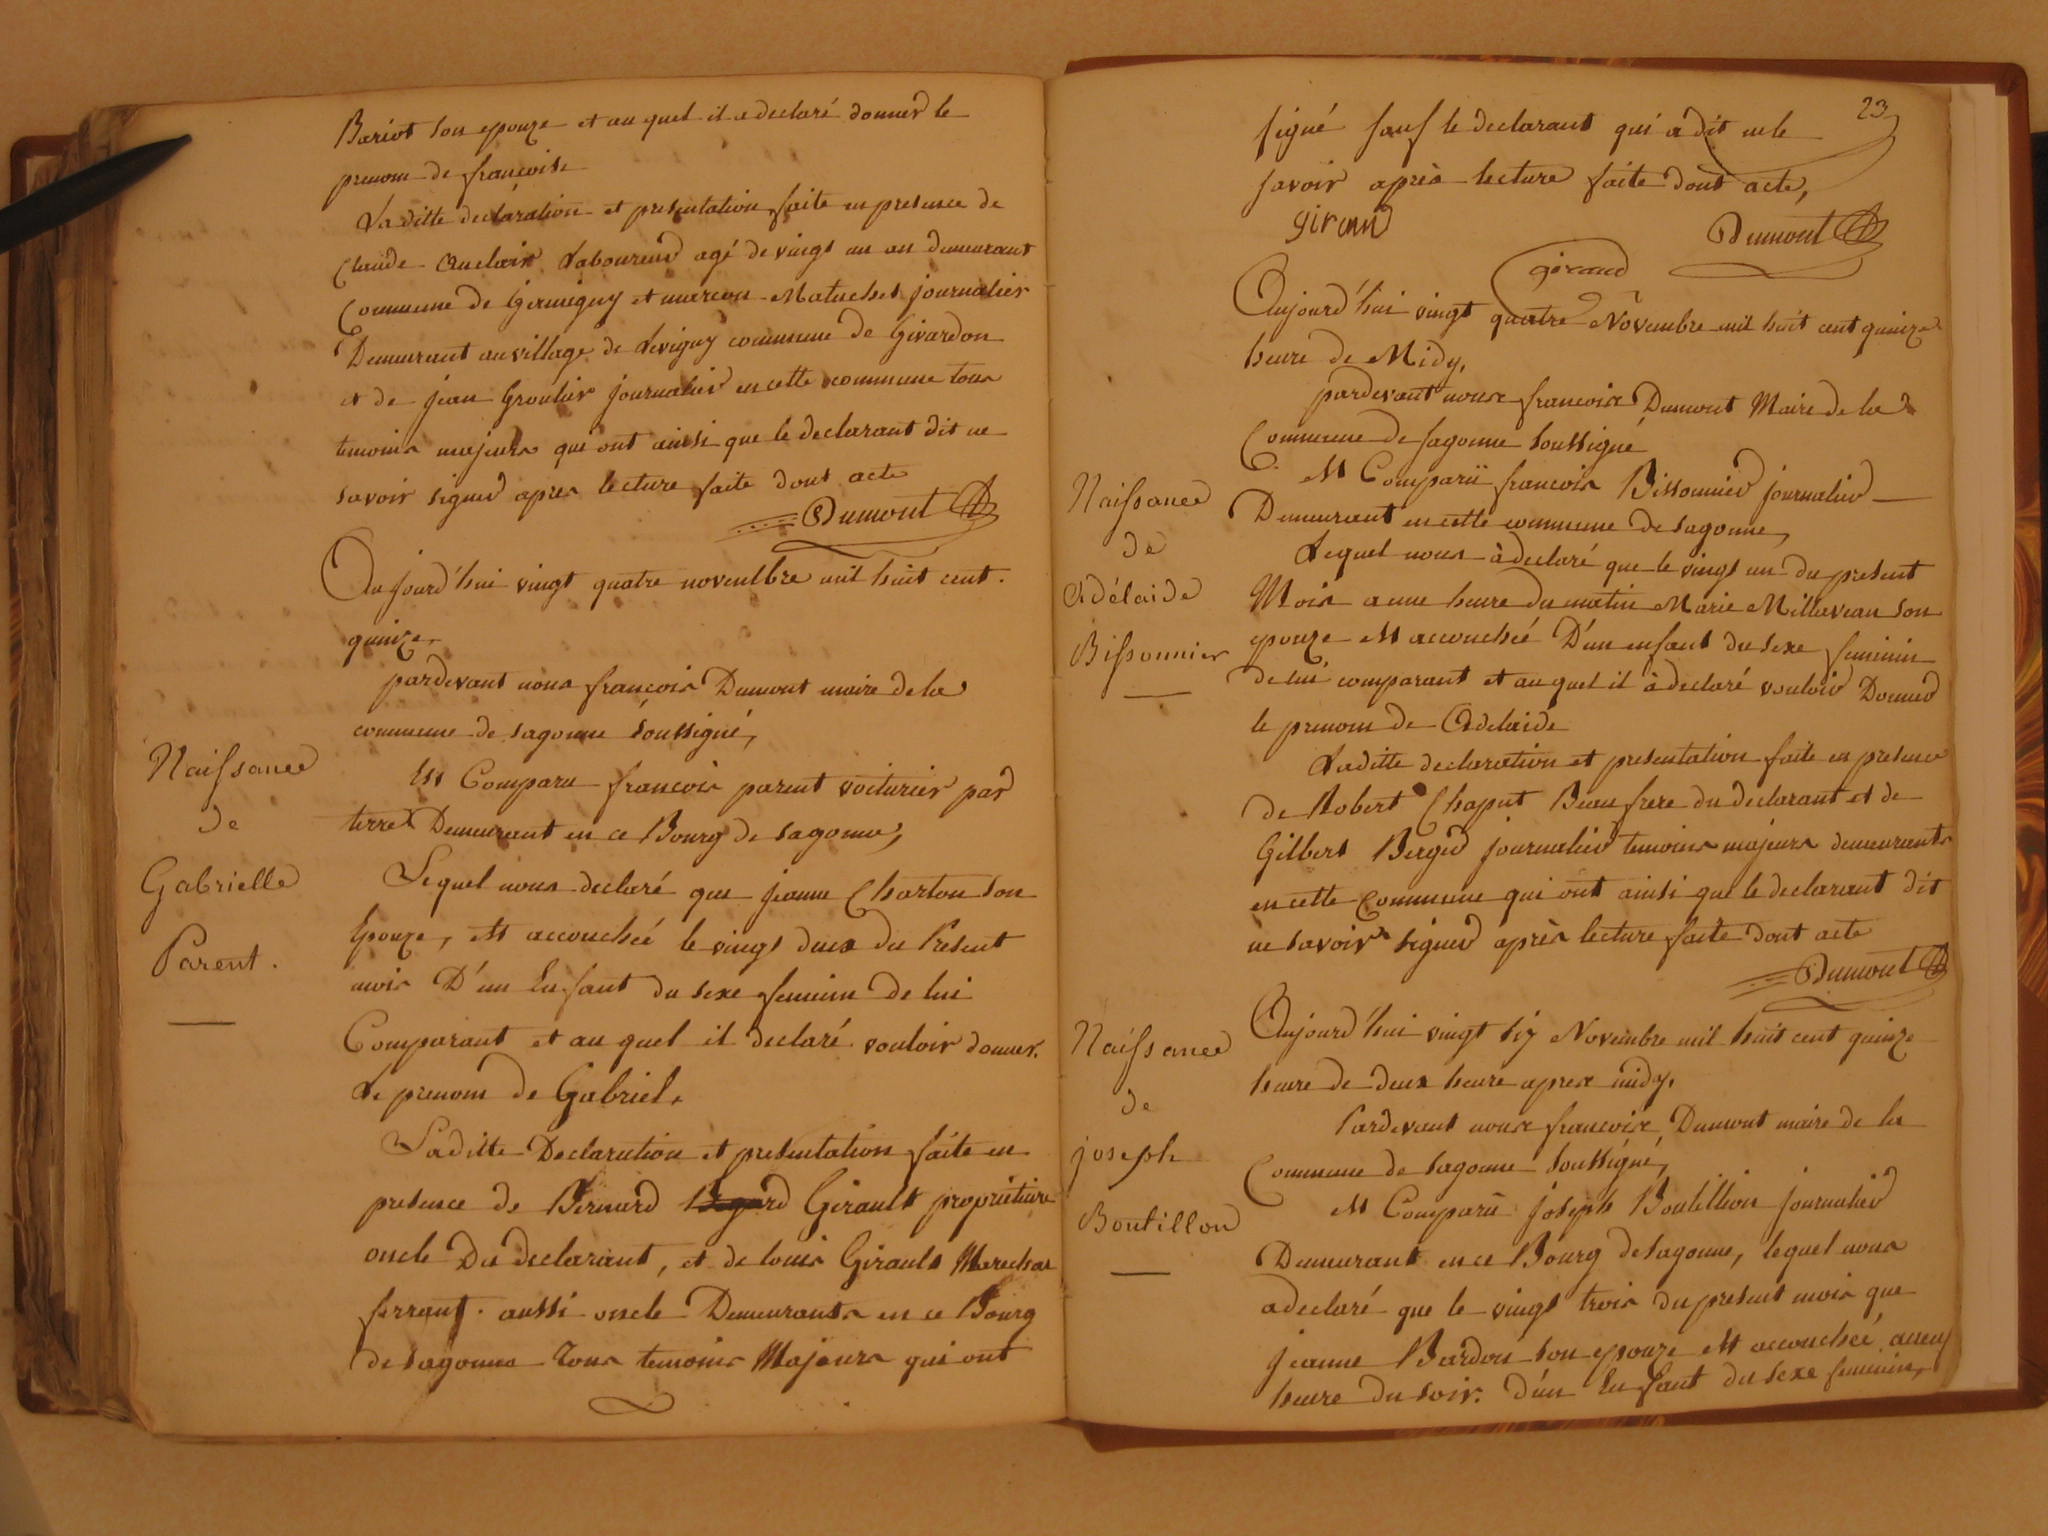 Bariot son epouze et au quel il a declaré donner le
prenom de francoise
Laditte declaration et presentation faite en presence de
Claude Auclair Laboureur agé de vingt un an demeurant
Commune de Germigny et marcou Matuchet journalier
Demeurant au village de Levigny commune de Givardon
et de jean Groulier journalier en cette commune tous
temoins majeurs qui ont ainsi que le declarant dit ne
savoir signer apres lecture faite dont acte
Dumont
Aujourd'hui vingt quatre novembre mil huit cent
quinze
pardevant nous francois Dumont maire de la
commune de sagonne soussigné,
Naissance
de
Gabrielle
Parent.
Est Comparu francois parent voiturier par
terre Demeurant en ce Bourg de sagonne,
Lequel nous declaré que jeanne Charton son
Epouze, est accouchéé le vingt deux du Present
mois D'un Enfant du sexe feminin de lui
Comparant et au quel il declaré vouloir donner
Le prenom de Gabriel.
Laditte Declaration et presentation faite en
presence de Bernard Girault propriétaire
oncle Du declarant, et de louis Girault Marechal
ferrant. aussi oncle Demeurants en ce Bourg
de sagonne Tous temoins Majeurs qui ont
23
signé sauf le declarant qui a dit ne le
savoir après lecture faite dont acte,
giraud
Dumont
giraud
Aujourd'hui vingt quatre Novembre mil huit cent quinze
heure de Midy,
pardevant nous francois Dumont Maire de la
Commune de sagonne soussigné
Naissance
de
Adélaide
Bissonnier
Est Comparü francois Bissonnier journalier
Demeurant en cette commune de sagonne,
Lequel nous à declaré que le vingt un du present
Mois a une heure du matin Marie Millaveau son
epouze est accouchéé D'un enfant du sexe feminin
de lui comparant et au quel il à declaré vouloir Donner
le prenom de Adelaide
Laditte declaration et presentation faite en presence
de Robert Chaput Beau frere du declarant et de
Gilbert Berger journalier temoins majeurs demeurants
en cette Commune qui ont ainsi que le declarant dit
ne savoir signer après lecture faite dont acte
Dumont
Aujourd'hui vingt six Novembre mil huit cent quinze
heure de deux heure apres midy.
Naissance
de
joseph
Boutillon
Pardevant nous francois Dumont maire de la
Commune de sagonne soussigné,
est Comparü joseph Boutillion journalier
Demeurant en ce Bourg de sagonne, lequel nous
a declaré que le vingt trois du present mois que
jeanne Bardon son epouze est accouchéé a neuf
heure du soir. d'un Enfant du sexe feminin,